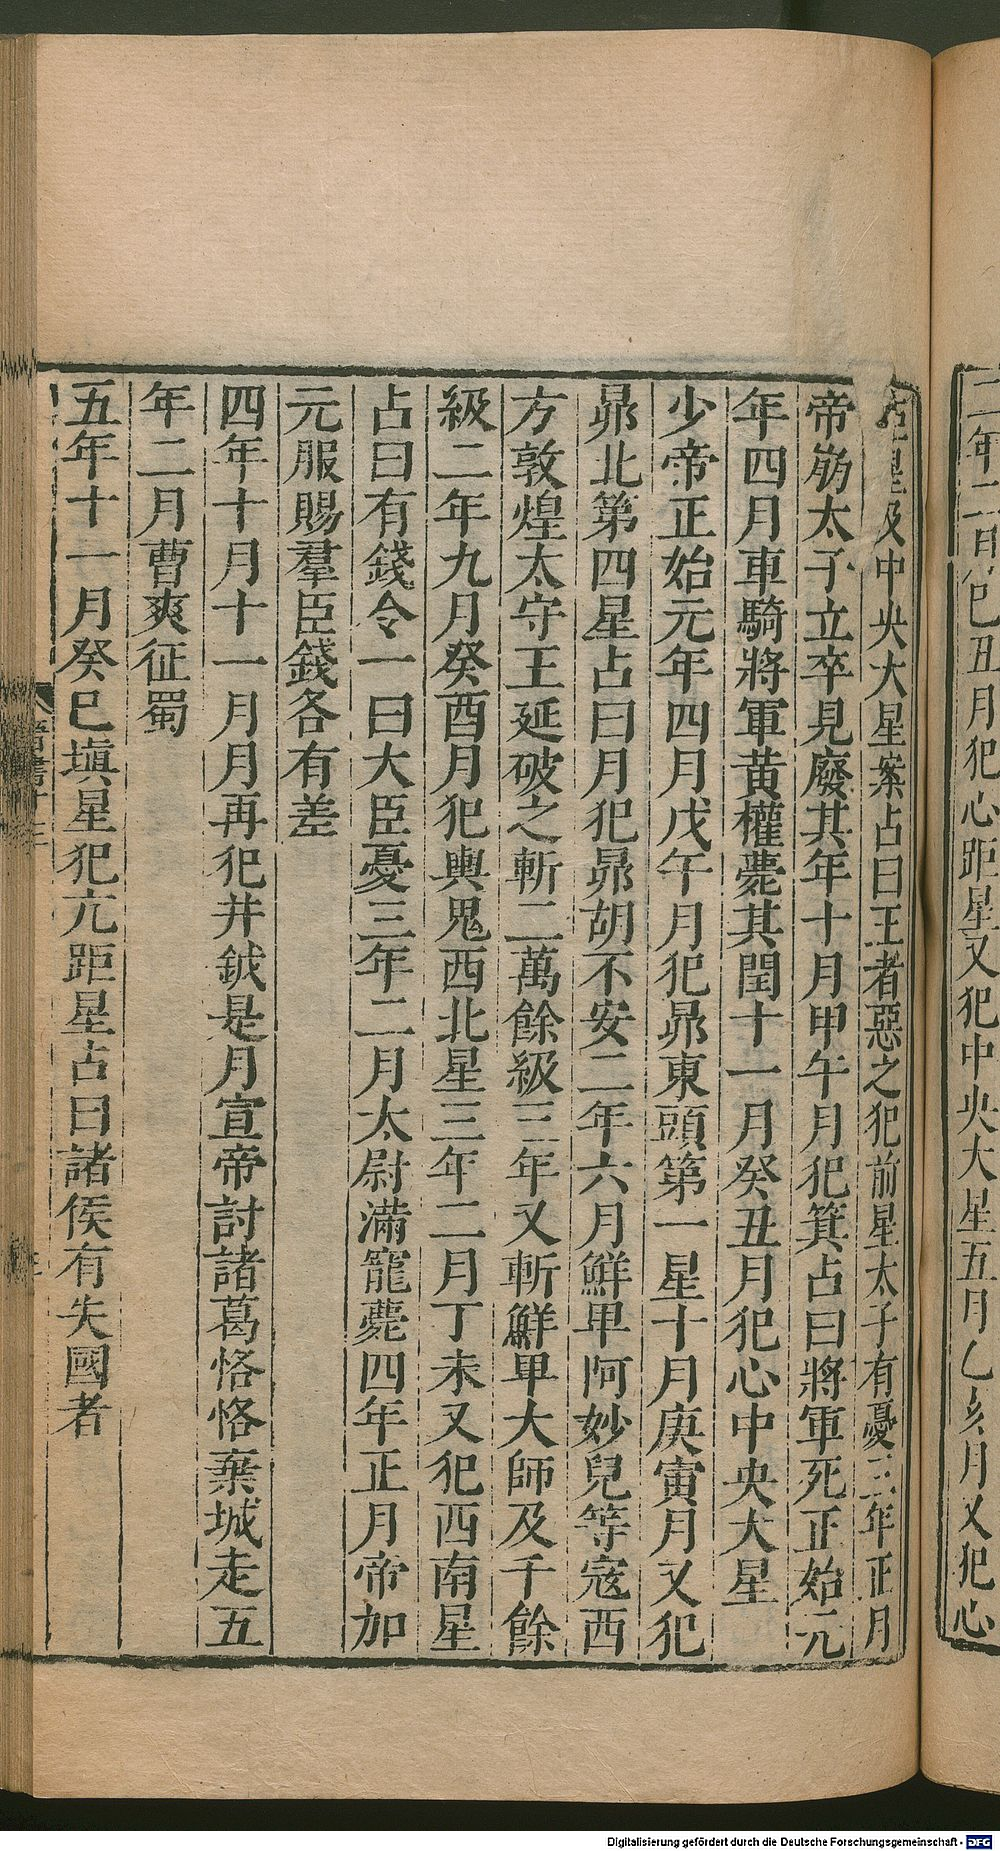 二年二月乙丑月犯心距星又犯中央大星五月乙亥月又犯心
距星及中央大星案占曰王者惡之犯前星太子有憂三年正月
帝崩太子立卒見廢其年十月甲午月犯箕占曰將軍死正始元
年四月車騎將軍黃權薨其閏十一月癸丑月犯心中央大星
少帝正始元年四月戊午月犯昴東頭第一星十月庚寅月又犯
昴北第四星占曰月犯昴胡不安二年六月鮮卑阿妙兒等寇西
方敦煌太守王延破之斬二萬餘級三年又斬鮮卑大師及千餘
級二年九月癸酉月犯輿鬼西北星三年二月丁未又犯西南星
占曰有錢令一曰大臣憂三年二月太尉滿寵薨四年正月帝加
元服賜羣臣錢各有差
四年十月十一月月再犯井鉞是月宣帝討諸葛恪恪棄城走五
年二月曹爽征蜀
五年十一月癸巳塡星犯亢距星占曰諸侯有失國者
晉書十三
Digitalisierung gefördert durch die Deutsche Forschungsgemeinschaft - DFG